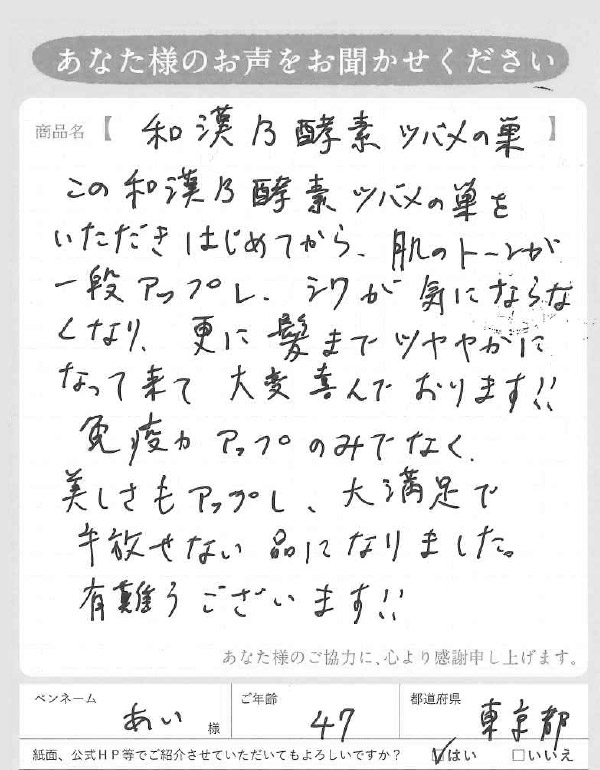 あなた様のお声をお聞かせください
商品名【 和漢乃酵素 ツバメの巣 】
この和漢乃酵素 ツバメの巣を
いただきはじめてから、肌のトーンが
一段アップし、シワが気にならな
くなり、更に髪までツヤやかに
なって来て 大変喜んでおります!!
免疫力アップのみでなく、
美しさもアップし、大満足で
手放せない品になりました。
有難うございます!!
あなた様のご協力に、心より感謝申し上げます。
ペンネーム あい 様 ご年齢 47 都道府県 東京都
紙面、公式HP等でご紹介させていただいてもよろしいですか? ☑はい □いいえ